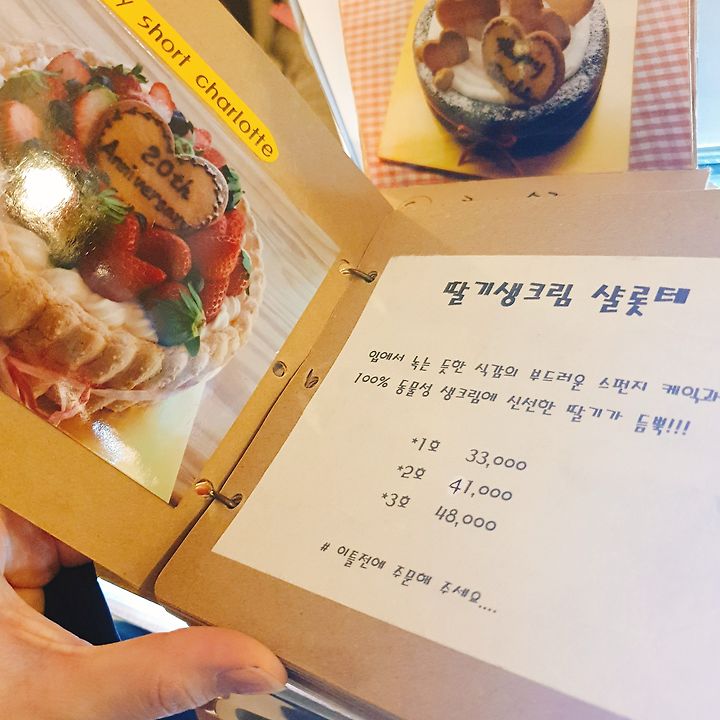 y short charlotte
20th
Anniversary
딸기생크림 샬롯테
입에서 녹는 듯한 식감의 부드러운 스펀지 케익과
100% 동물성 생크림에 신선한 딸기가 듬뿍!!!
*1호 33,000
*2호 41,000
*3호 48,000
# 이틀전에 주문해 주세요....